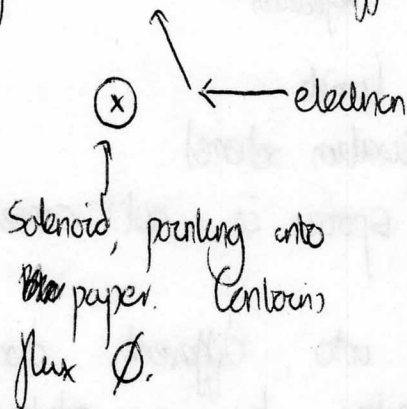 electron
x
Solenoid, pointing into
paper. Contains
flux Ø.